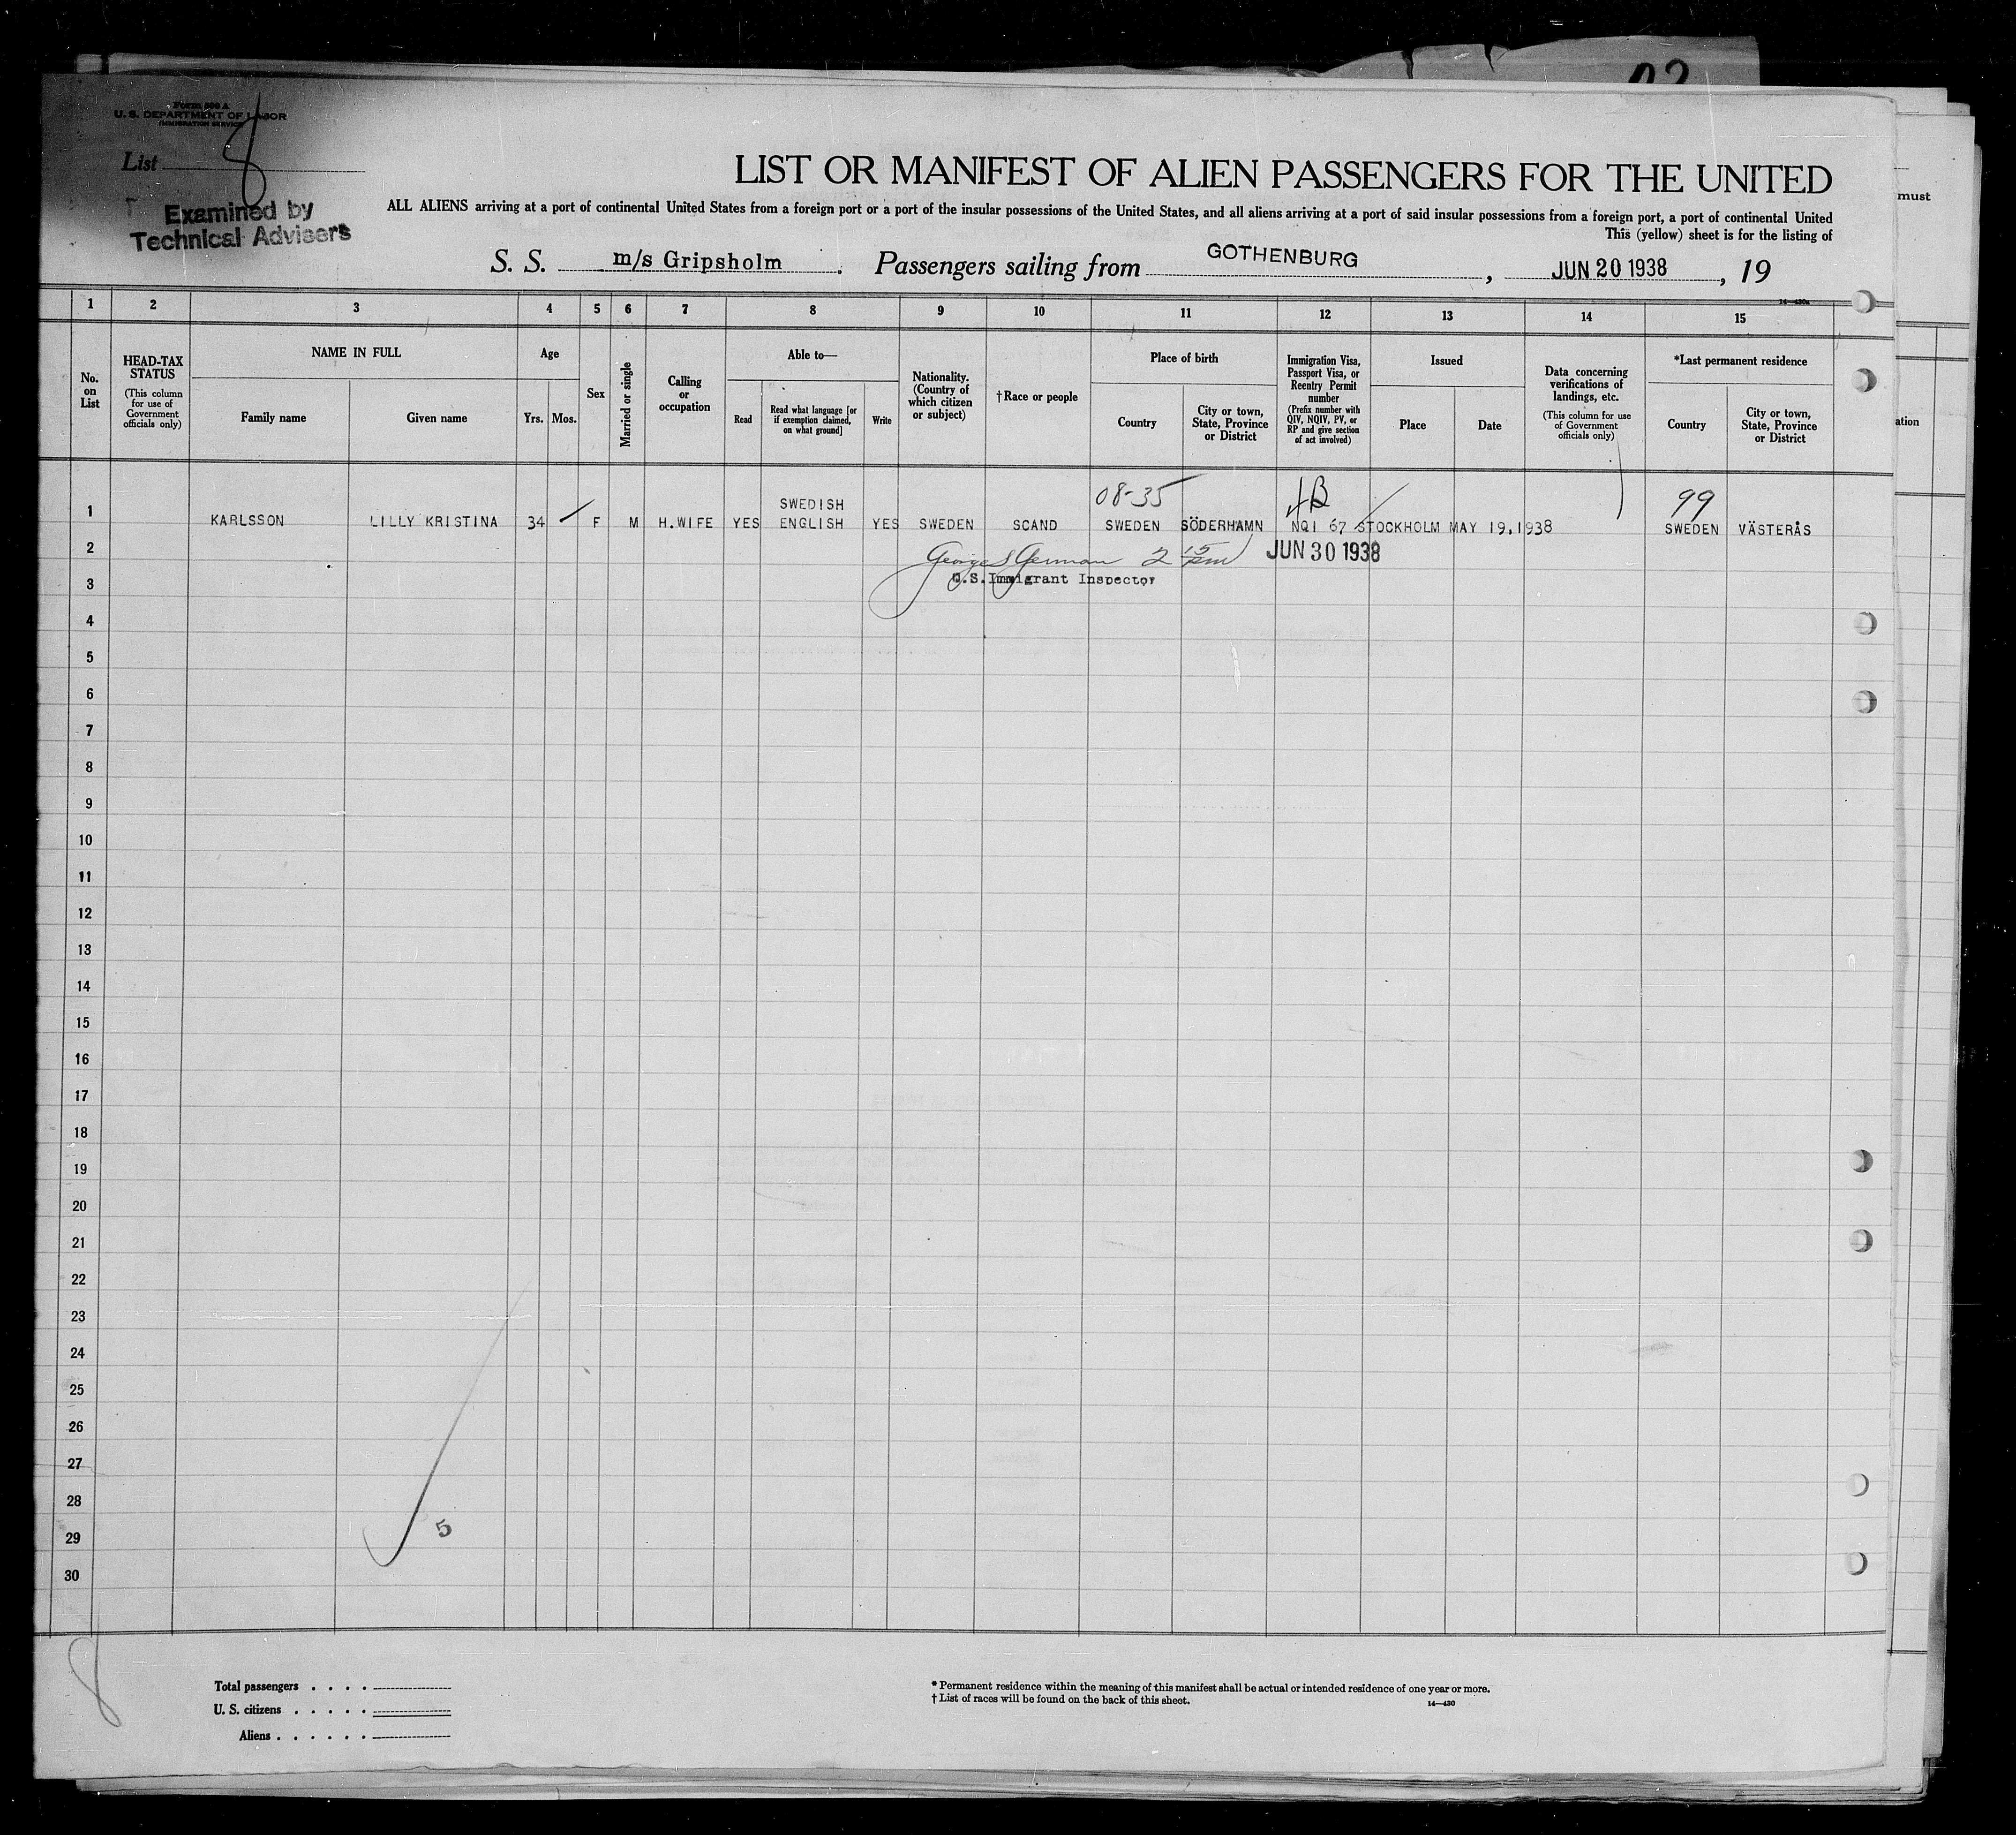 02
Form 500 A
U. S. DEPARTMENT OF LABOR
IMMIGRATION SERVICE
List 8
Examined by
Technical Advisers
LIST OR MANIFEST OF ALIEN PASSENGERS FOR THE UNITED
ALL ALIENS arriving at a port of continental United States from a foreign port or a port of the insular possessions of the United States, and all aliens arriving at a port of said insular possessions from a foreign port, a port of continental United
This (yellow) sheet is for the listing of
must
S. S. m/s Gripsholm. Passengers sailing from GOTHENBURG, JUN 20 1938, 19
1 2 3 4 5 6 7 8 9 10 11 12 13 14 15
No. on List
HEAD-TAX STATUS
(This column for use of Government officials only)
NAME IN FULL
Family name
Given name
Age
Yrs. Mos.
Sex
Married or single
Calling or occupation
Able to—
Read
Read what language [or if exemption claimed, on what ground]
Write
Nationality. (Country of which citizen or subject)
†Race or people
Place of birth
Country
City or town, State, Province or District
Immigration Visa, Passport Visa, or Reentry Permit number
(Prefix number with QIV, NQIV, PV, or RP and give section of act involved)
Issued
Place
Date
Data concerning verifications of landings, etc.
(This column for use of Government officials only)
*Last permanent residence
Country
City or town, State, Province or District
ation
08-35
99
SWEDISH
1 KARLSSON LILLY KRISTINA 34 F M H.WIFE YES ENGLISH YES SWEDEN SCAND SWEDEN SÖDERHAMN NQI 67 STOCKHOLM MAY 19.1938 SWEDEN VÄSTERÅS
2 George S German 2 15 pm JUN 30 1938
3 U.S. Immigrant Inspector
4
5
6
7
8
9
10
11
12
13
14
15
16
17
18
19
20
21
22
23
24
25
26
27
28
29
5
30
8
Total passengers . . . .
U. S. citizens . . . . .
Aliens . . . . . .
* Permanent residence within the meaning of this manifest shall be actual or intended residence of one year or more.
† List of races will be found on the back of this sheet.
14—430